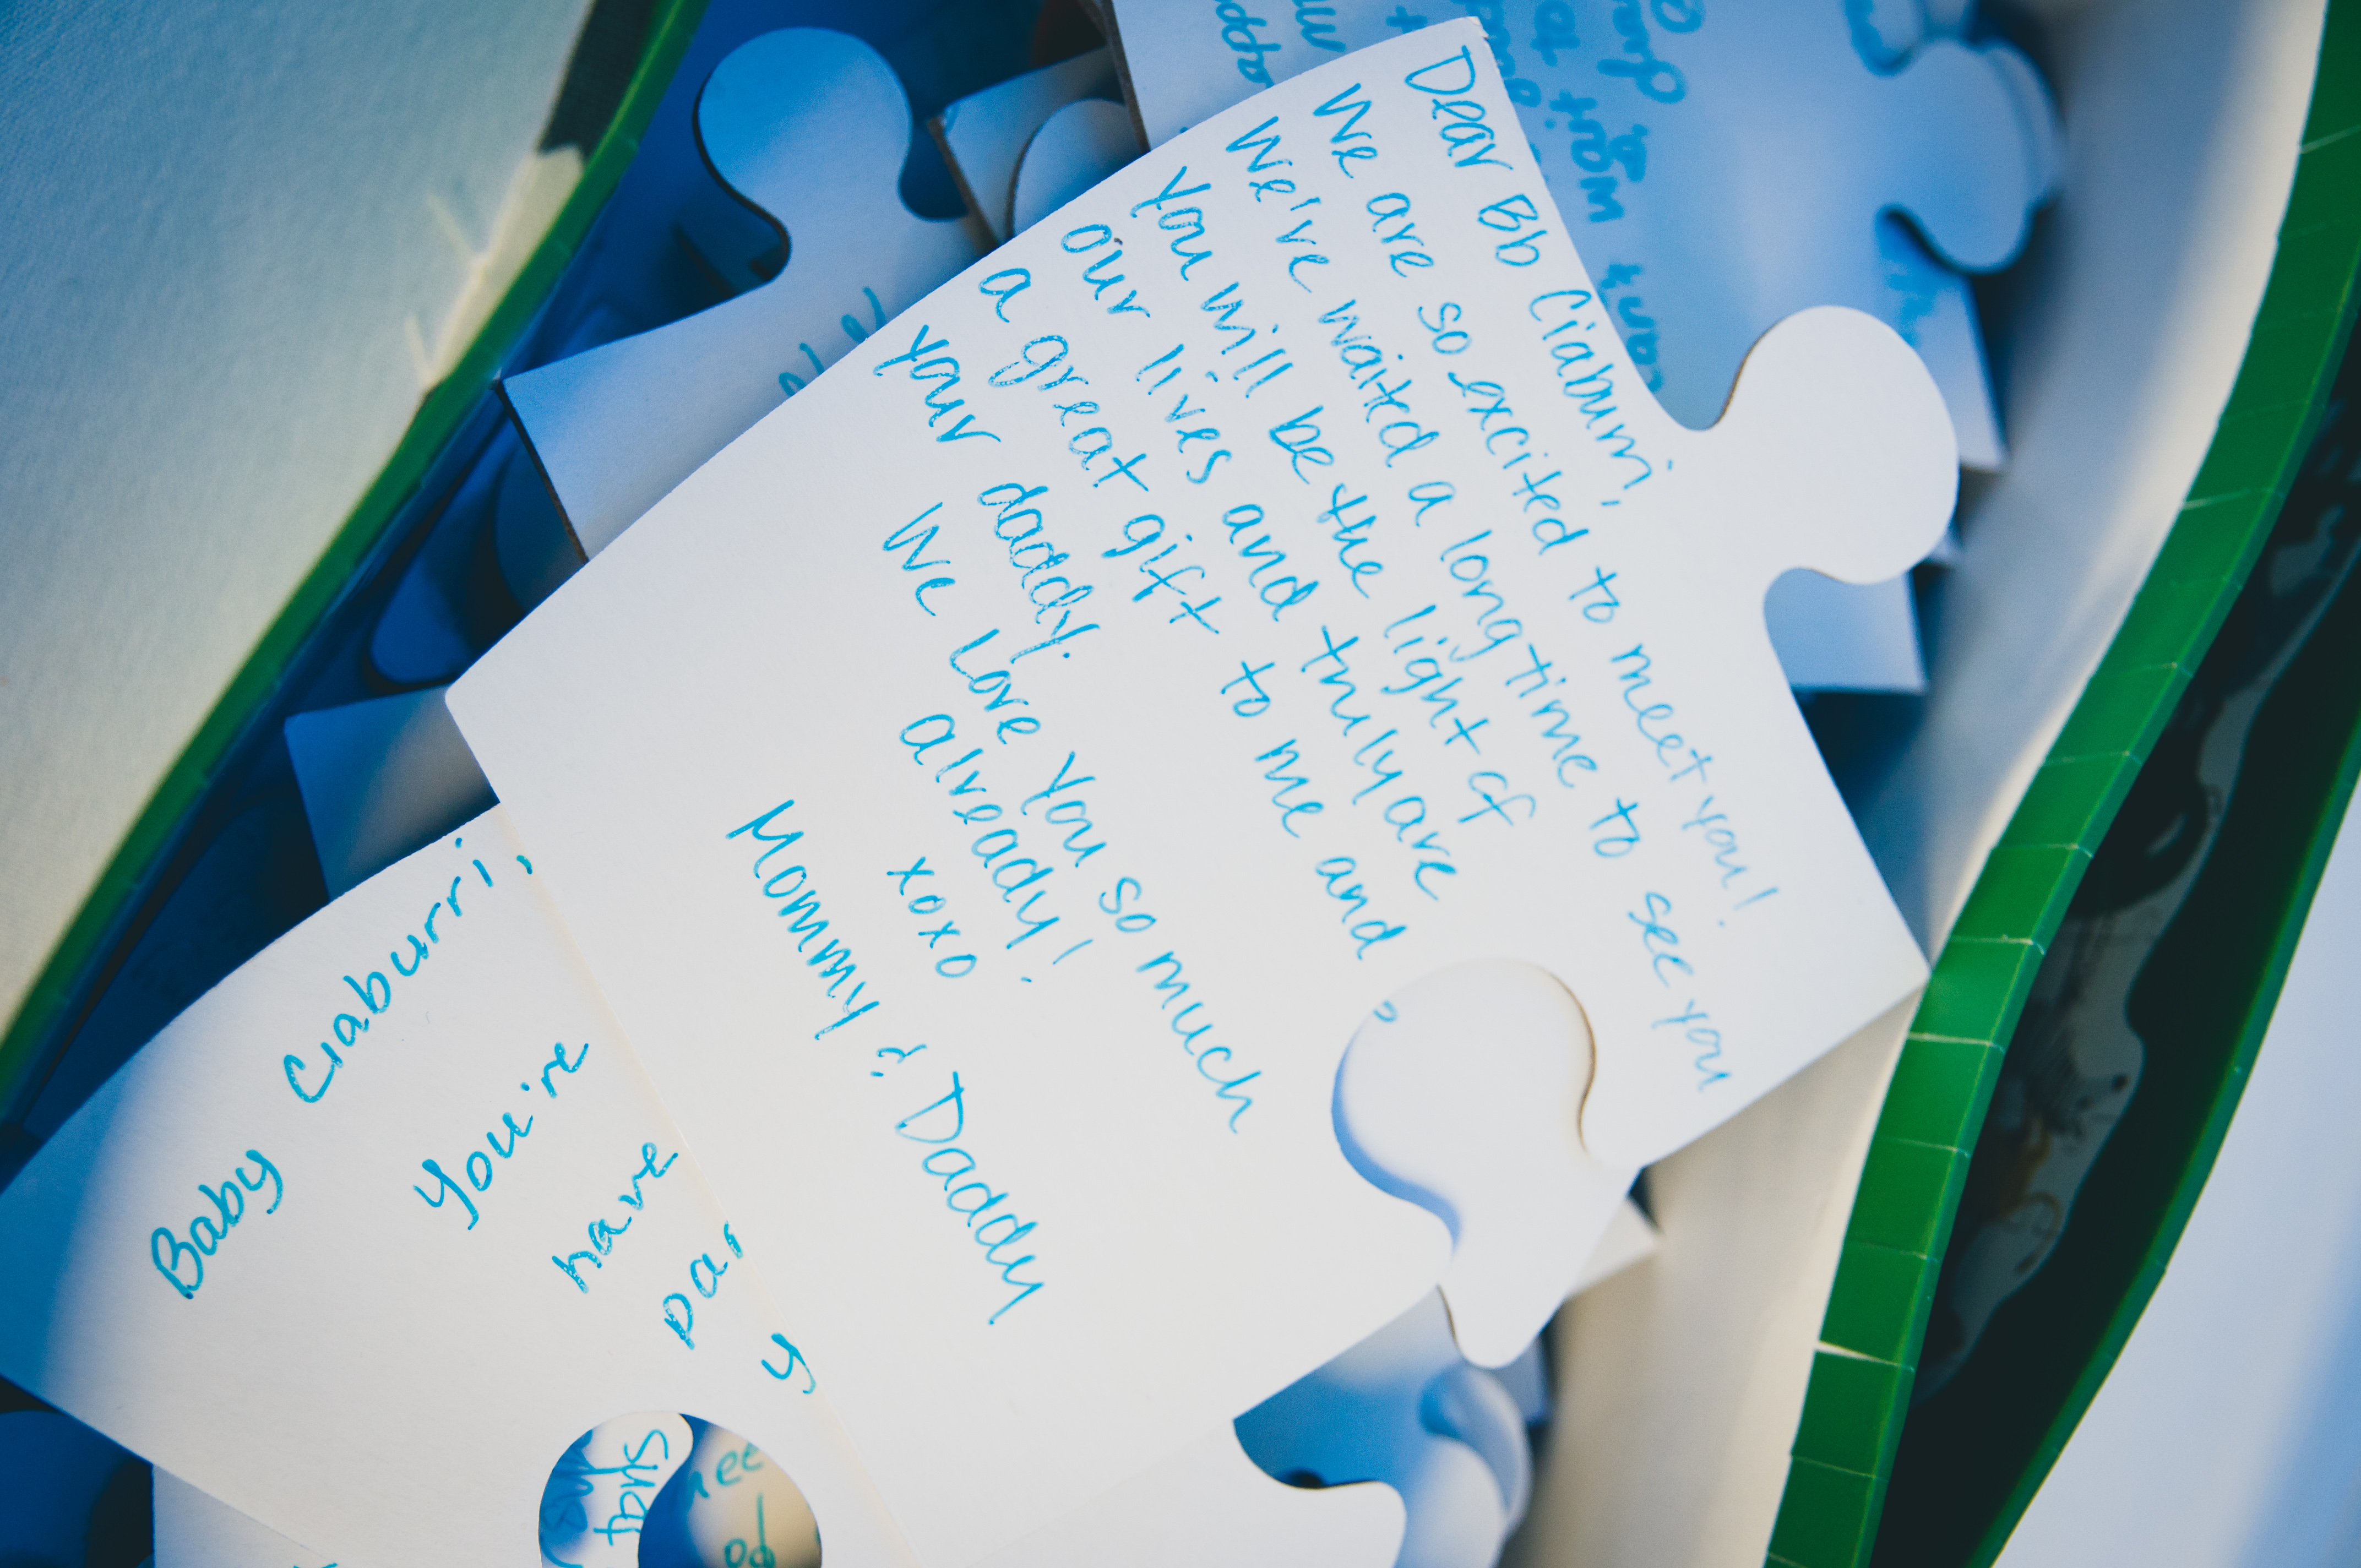 Dear Bb Ciaburri,
We are so excited to meet you!
We've waited a long time to see you
You will be the light of
our lives and truly are
a great gift to me and
your daddy.
We love you so much
already!
xoxo
Mommy & Daddy
Baby Ciaburri,
You're
have
y